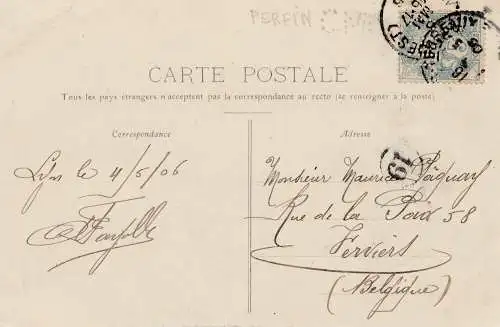 PERFIN
CARTE POSTALE
Tous les pays étrangers n'acceptent pas la correspondance au recto (se renseigner à la poste)
Correspondance
Adresse
Lyon le 4/5/06
Monsieur Maurice Pâquay
Rue de la Paix 58
Verviers
(Belgique)
19